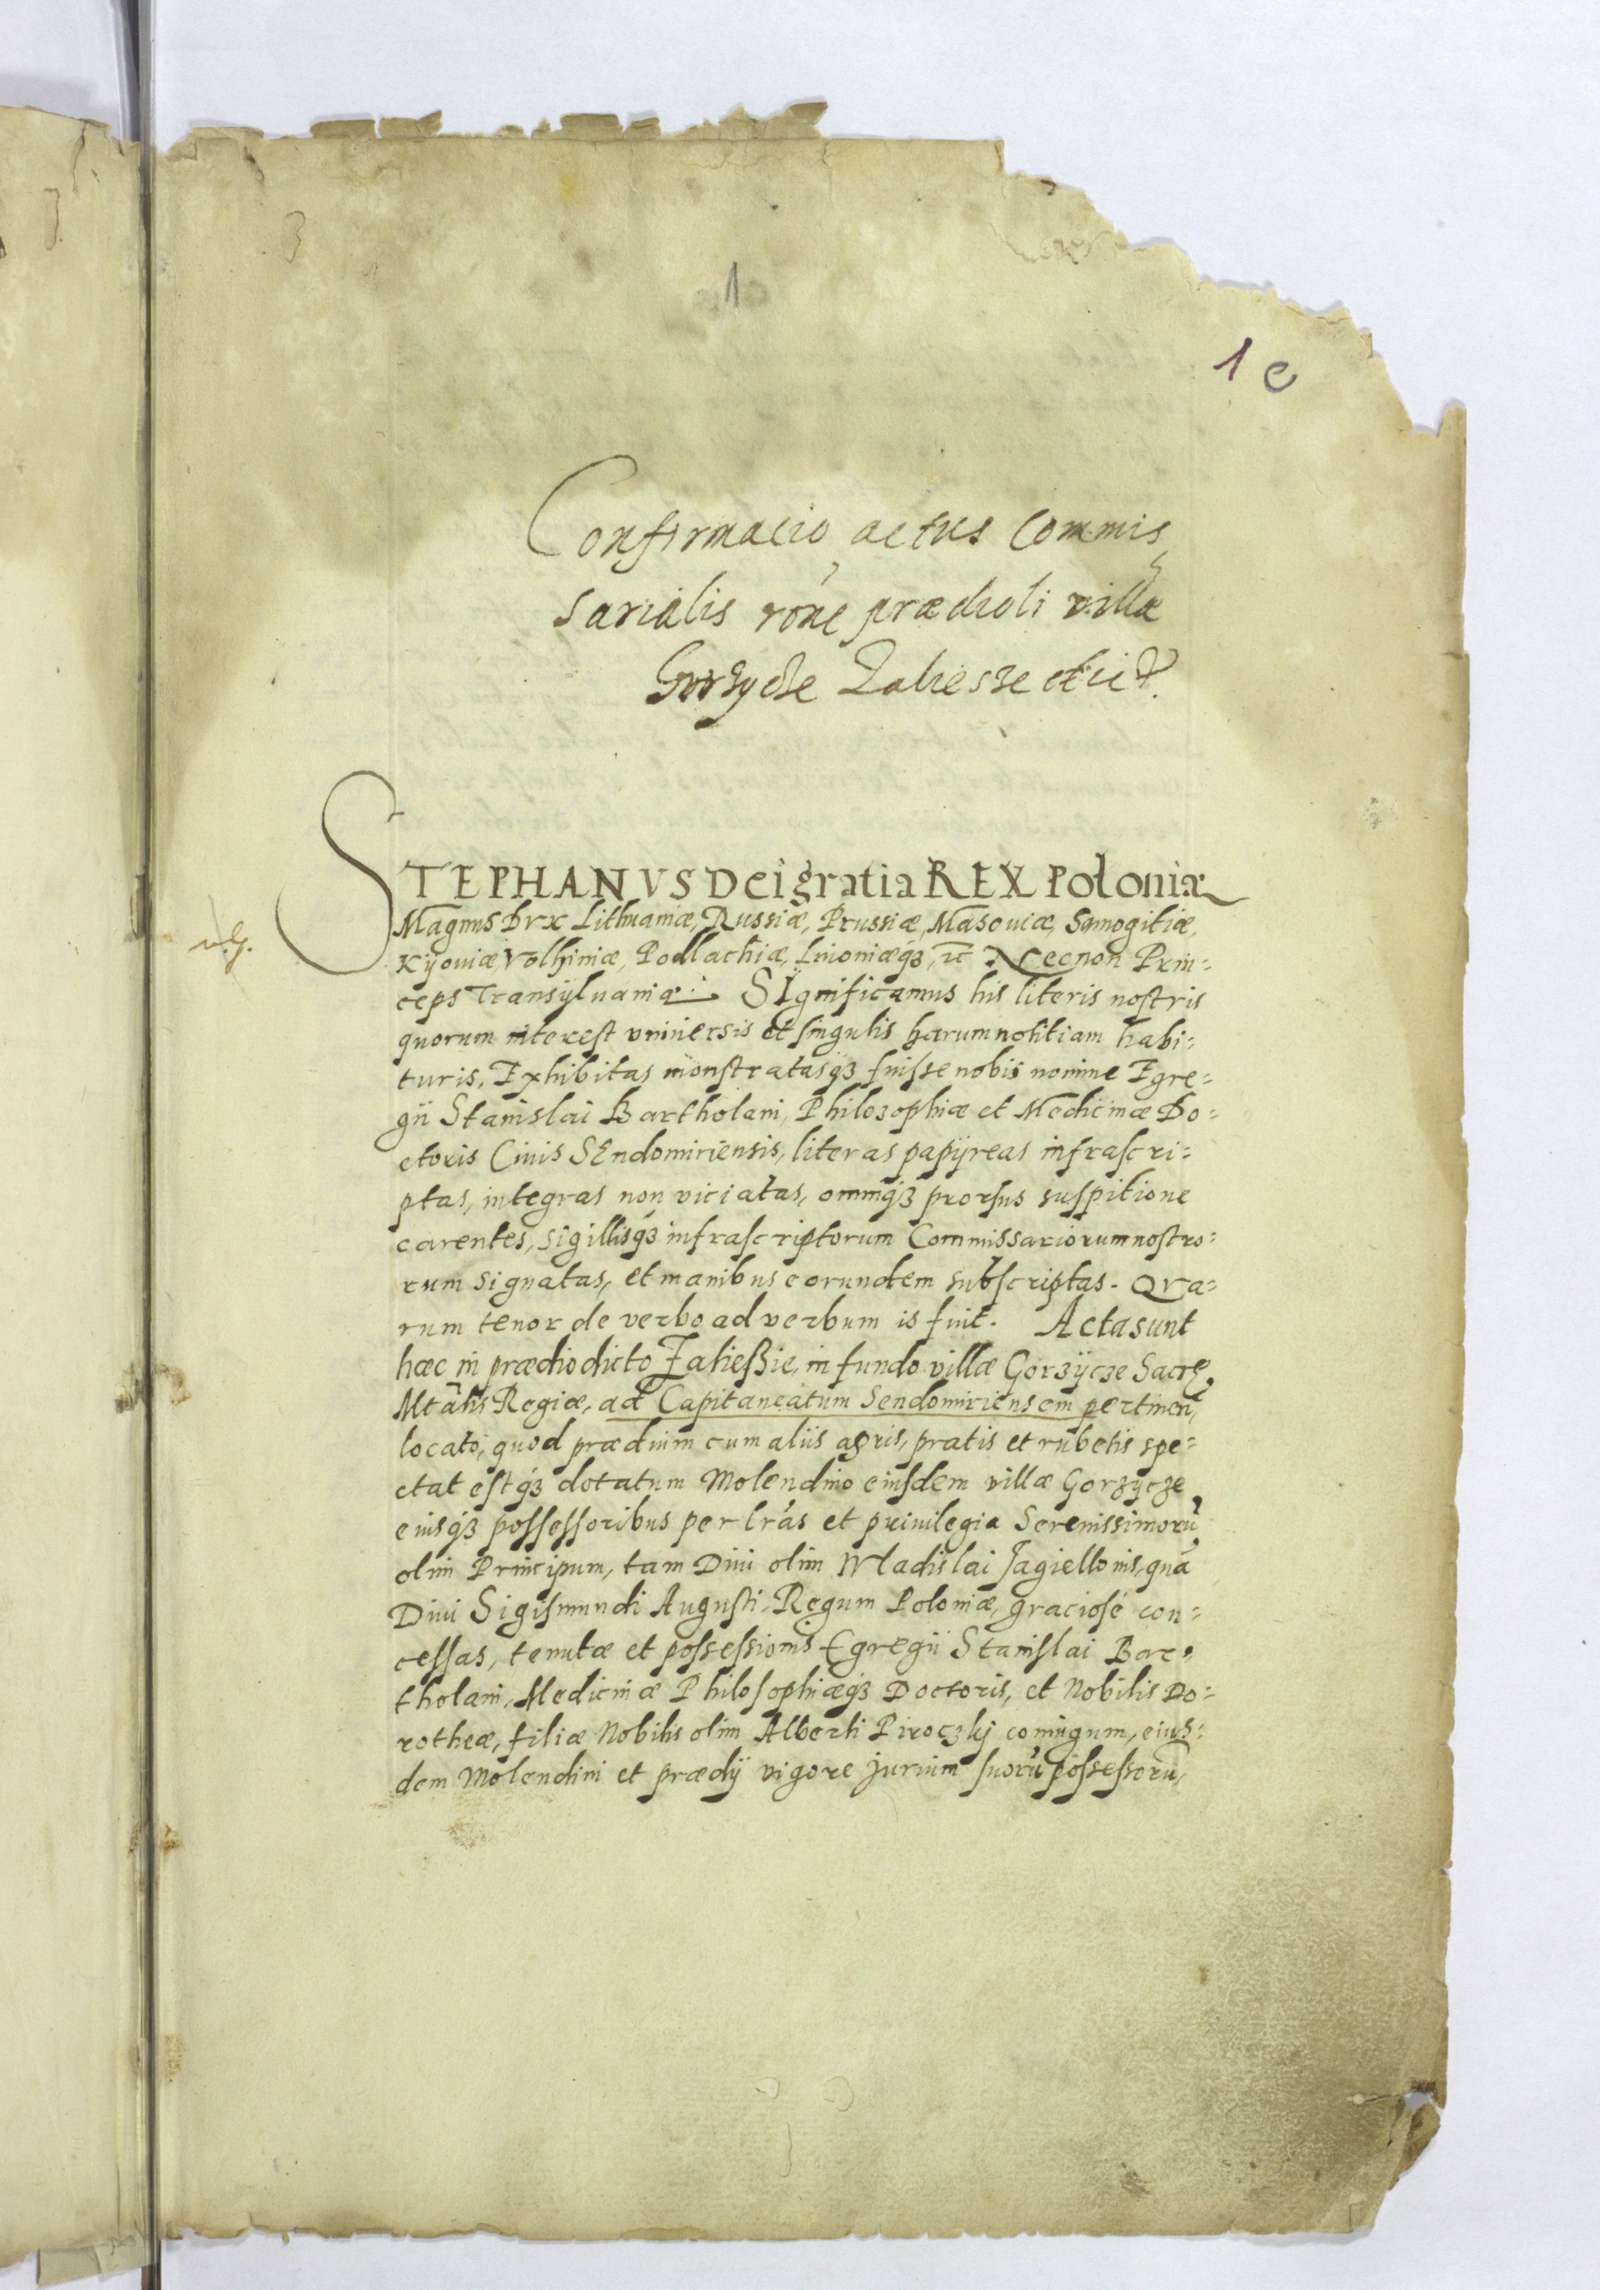 1
1 e
Confirmacio actus Commis
sarialis rõne prædioli villæ
Gorzycze Zaliesse
STEPHANVS Dei gratia REX Poloniæ
Magnus Dvx Lithuaniæ, Russiæ, Prussiæ, Masouiæ, Samogitiæ,
Kijouiæ, Volhiniæ, Podlachiæ, Liuoniæqȝ, ꝛc Necnon Prin=
ceps Transyluaniæ. SIgnificamus his literis nostris
quorum interest vniuersis et singulis harum notitiam habi=
turis, Exhibitas monstratasqȝ fuisse nobis nomine Egre=
gii Stanislai Bartholani, Philozophiæ et Medicinæ Do=
ctoris Ciuis SEndomiriensis, literas papijreas infrascri=
ptas, integras non viciatas, omniqȝ prorsus suspitione
carentes, sigillisqȝ infrascriptorum Commissariorum nostro=
rum signatas, et manibus eorundem subscriptas. Qva=
rum tenor de verbo ad verbum is fuit. Acta sunt
hæc in prædio dicto Zalieẞie, in fundo villæ Gorzijcze Sacrę
Mtãtis Regiæ, ad Capitaneatum Sendomiriensem pertinen,
locato, quod prædium cum aliis agris, pratis et rubetis spe=
ctat estqȝ dotatum Molendino eiusdem villæ Gorzycze
eiusqȝ possessoribus per lras et priuilegia Serenissimorũ
olim Principum, tam Diui olim Wladislai Jagiellonis, quã
Diui Sigismundi Augusti, Regum Poloniæ, graciosè con=
cessas, tenutæ et possessionis Egregii Stanislai Bar=
tholani, Medicinæ Philosophiæqȝ Doctoris, et Nobilis Do=
rotheæ, filiæ Nobilis olim Alberti Piroczkj coniugum, eius=
dem Molendini et prædij vigore jurium suorũ possessorũ,